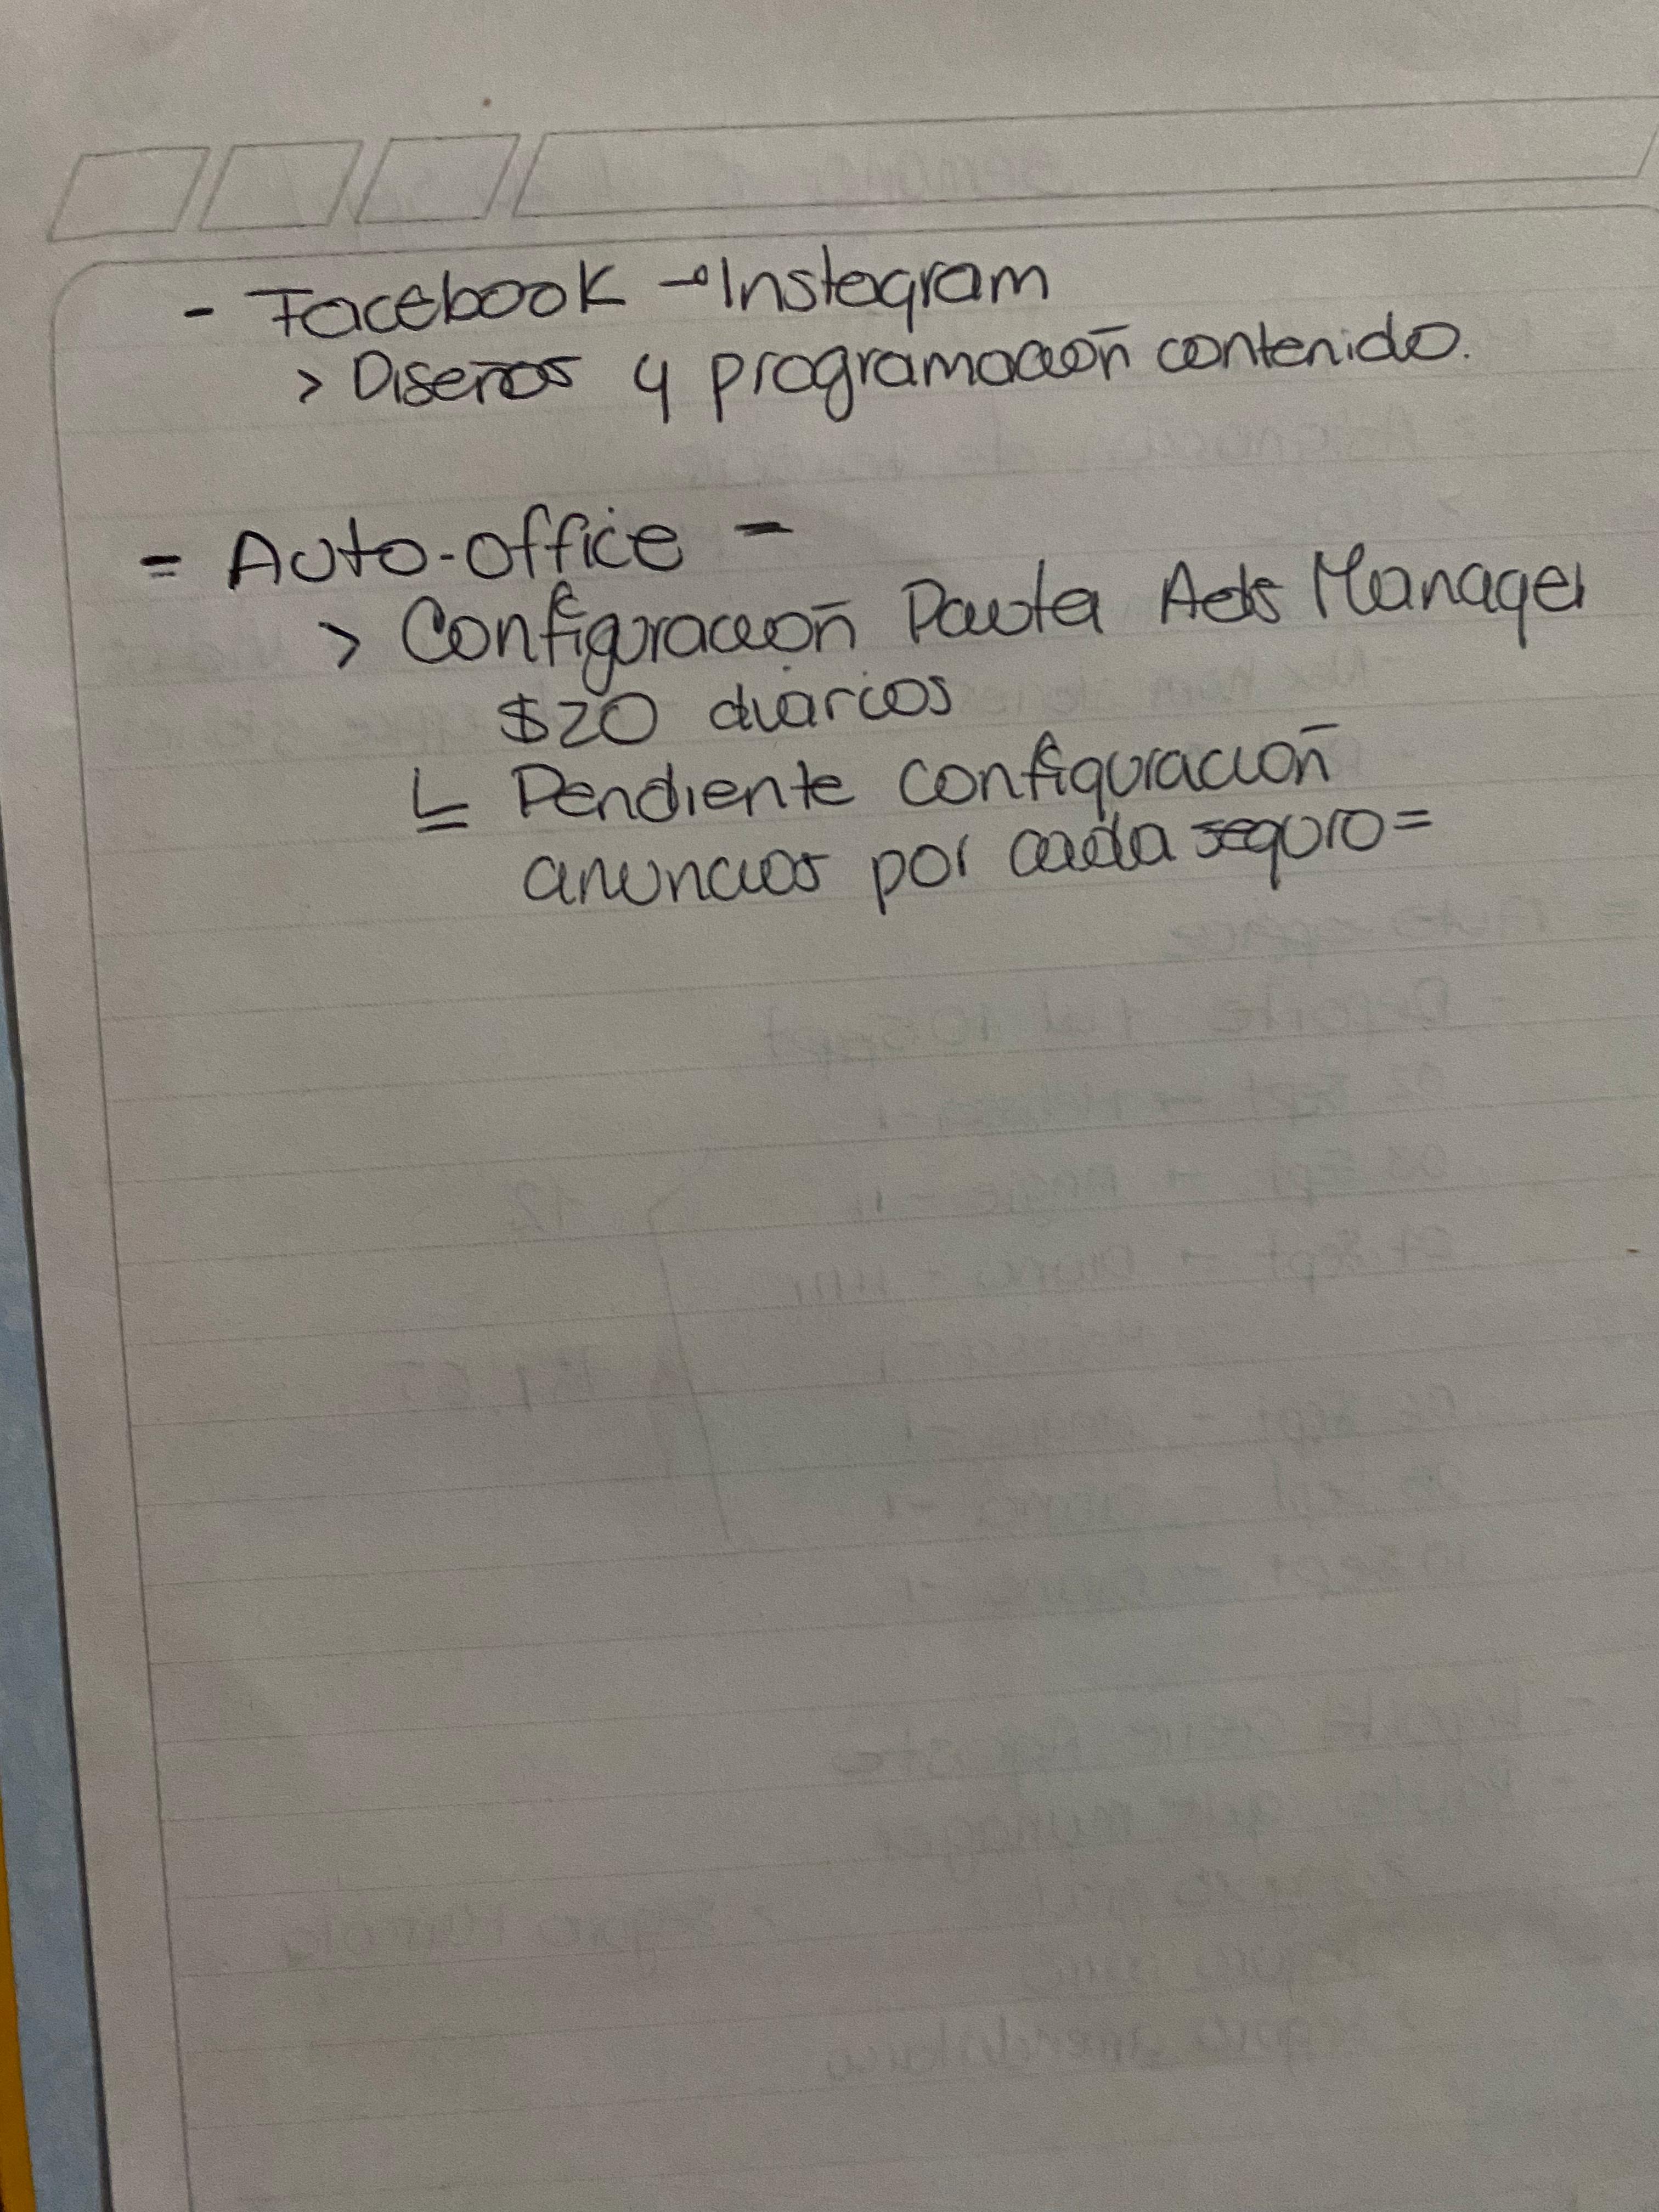 - Facebook → Instagram
> Diseños y programación contenido.
= Auto-office -
> Configuración Pauta Ads Manager
$20 diarios
↳ Pendiente configuración
anuncios por cada seguro =